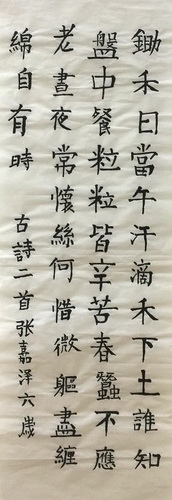 鋤禾日當午汗滴禾下土誰知
盤中餐粒粒皆辛苦春蠶不應
老晝夜常懷絲何惜微軀盡纏
綿自有時
古詩二首张嘉泽六歲